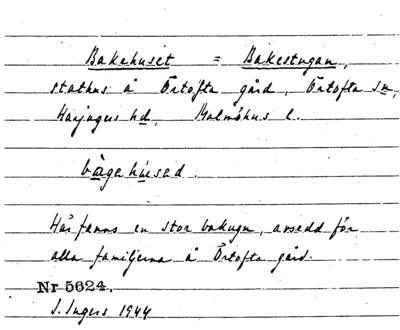 Bakehuset = Bakestugan,
stathus å Örtofta gård, Örtofta sn,
Harjagers hd, Malmöhus l.
bàgahúsad.
Här fanns en stor bakugn, avsedd för
alla familjerna å Örtofta gård.
Nr 5624.
I. Ingers 1944